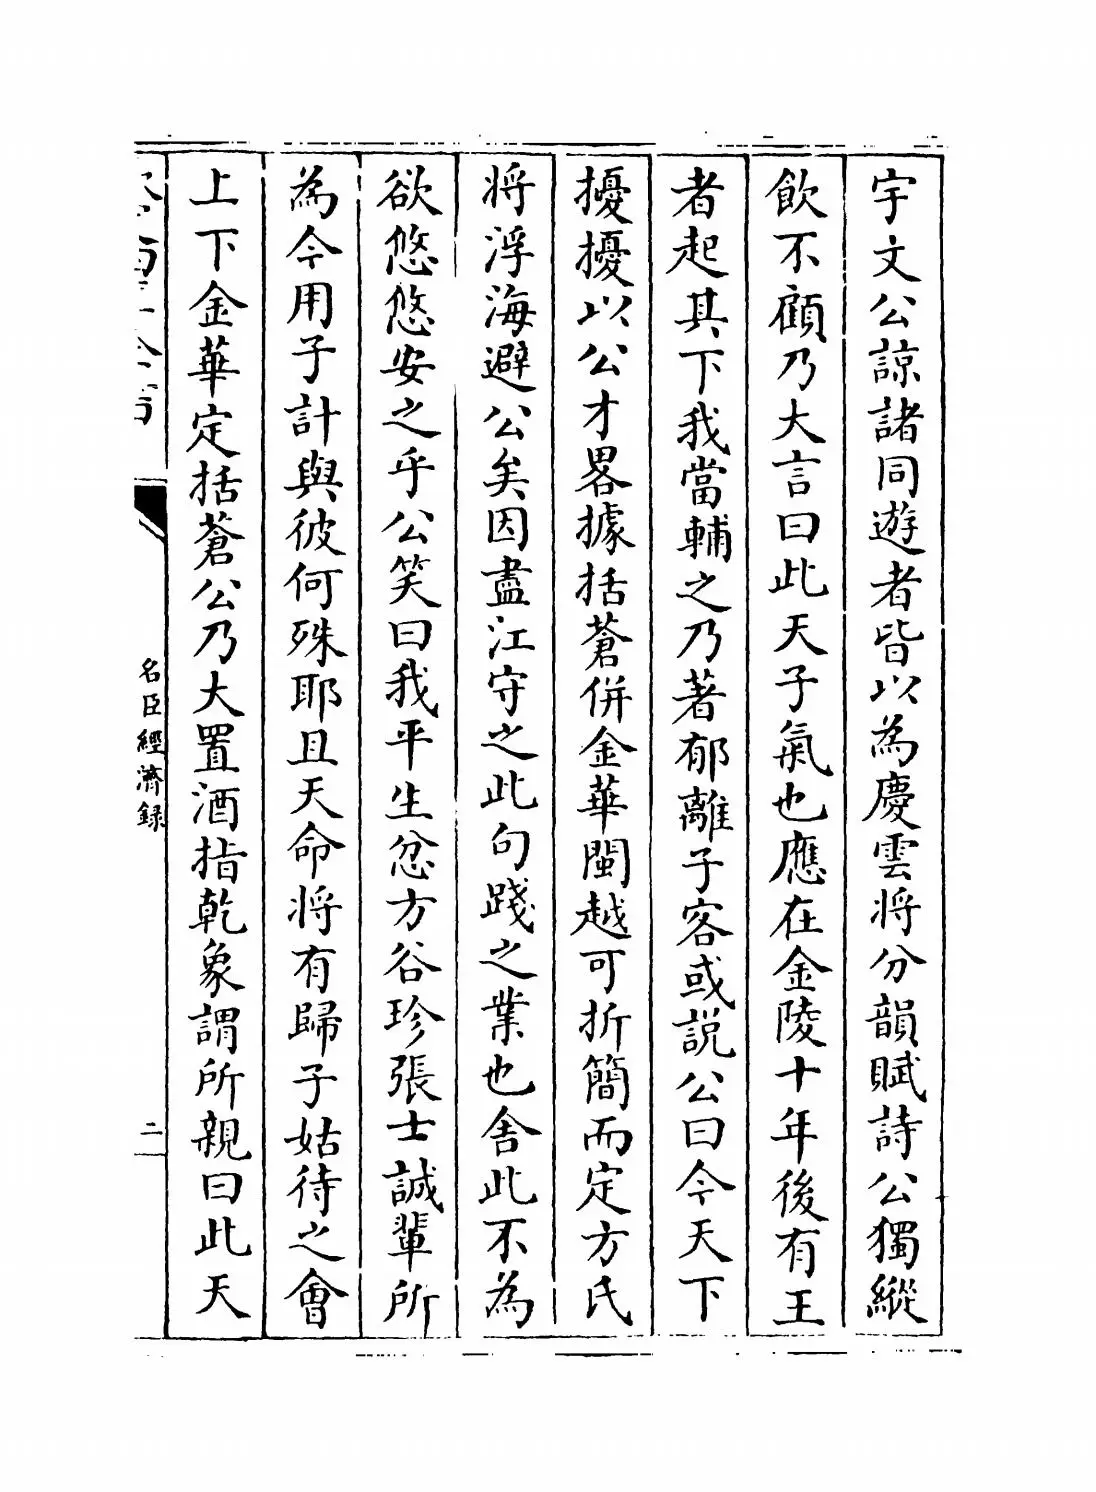 宇文公諒諸同遊者皆以為慶雲將分韻賦詩公獨縱
飲不顧乃大言曰此天子氣也應在金陵十年後有王
者起其下我當輔之乃著郁離子客或説公曰今天下
擾擾以公才畧據括蒼併金華閩越可折簡而定方氏
將浮海避公矣因盡江守之此句踐之業也舍此不為
欲悠悠安之乎公笑曰我平生忿方谷珍張士誠輩所
為今用子計與彼何殊耶且天命將有歸子姑待之會
上下金華定括蒼公乃大置酒指乾象謂所親曰此天
名臣經濟録
二